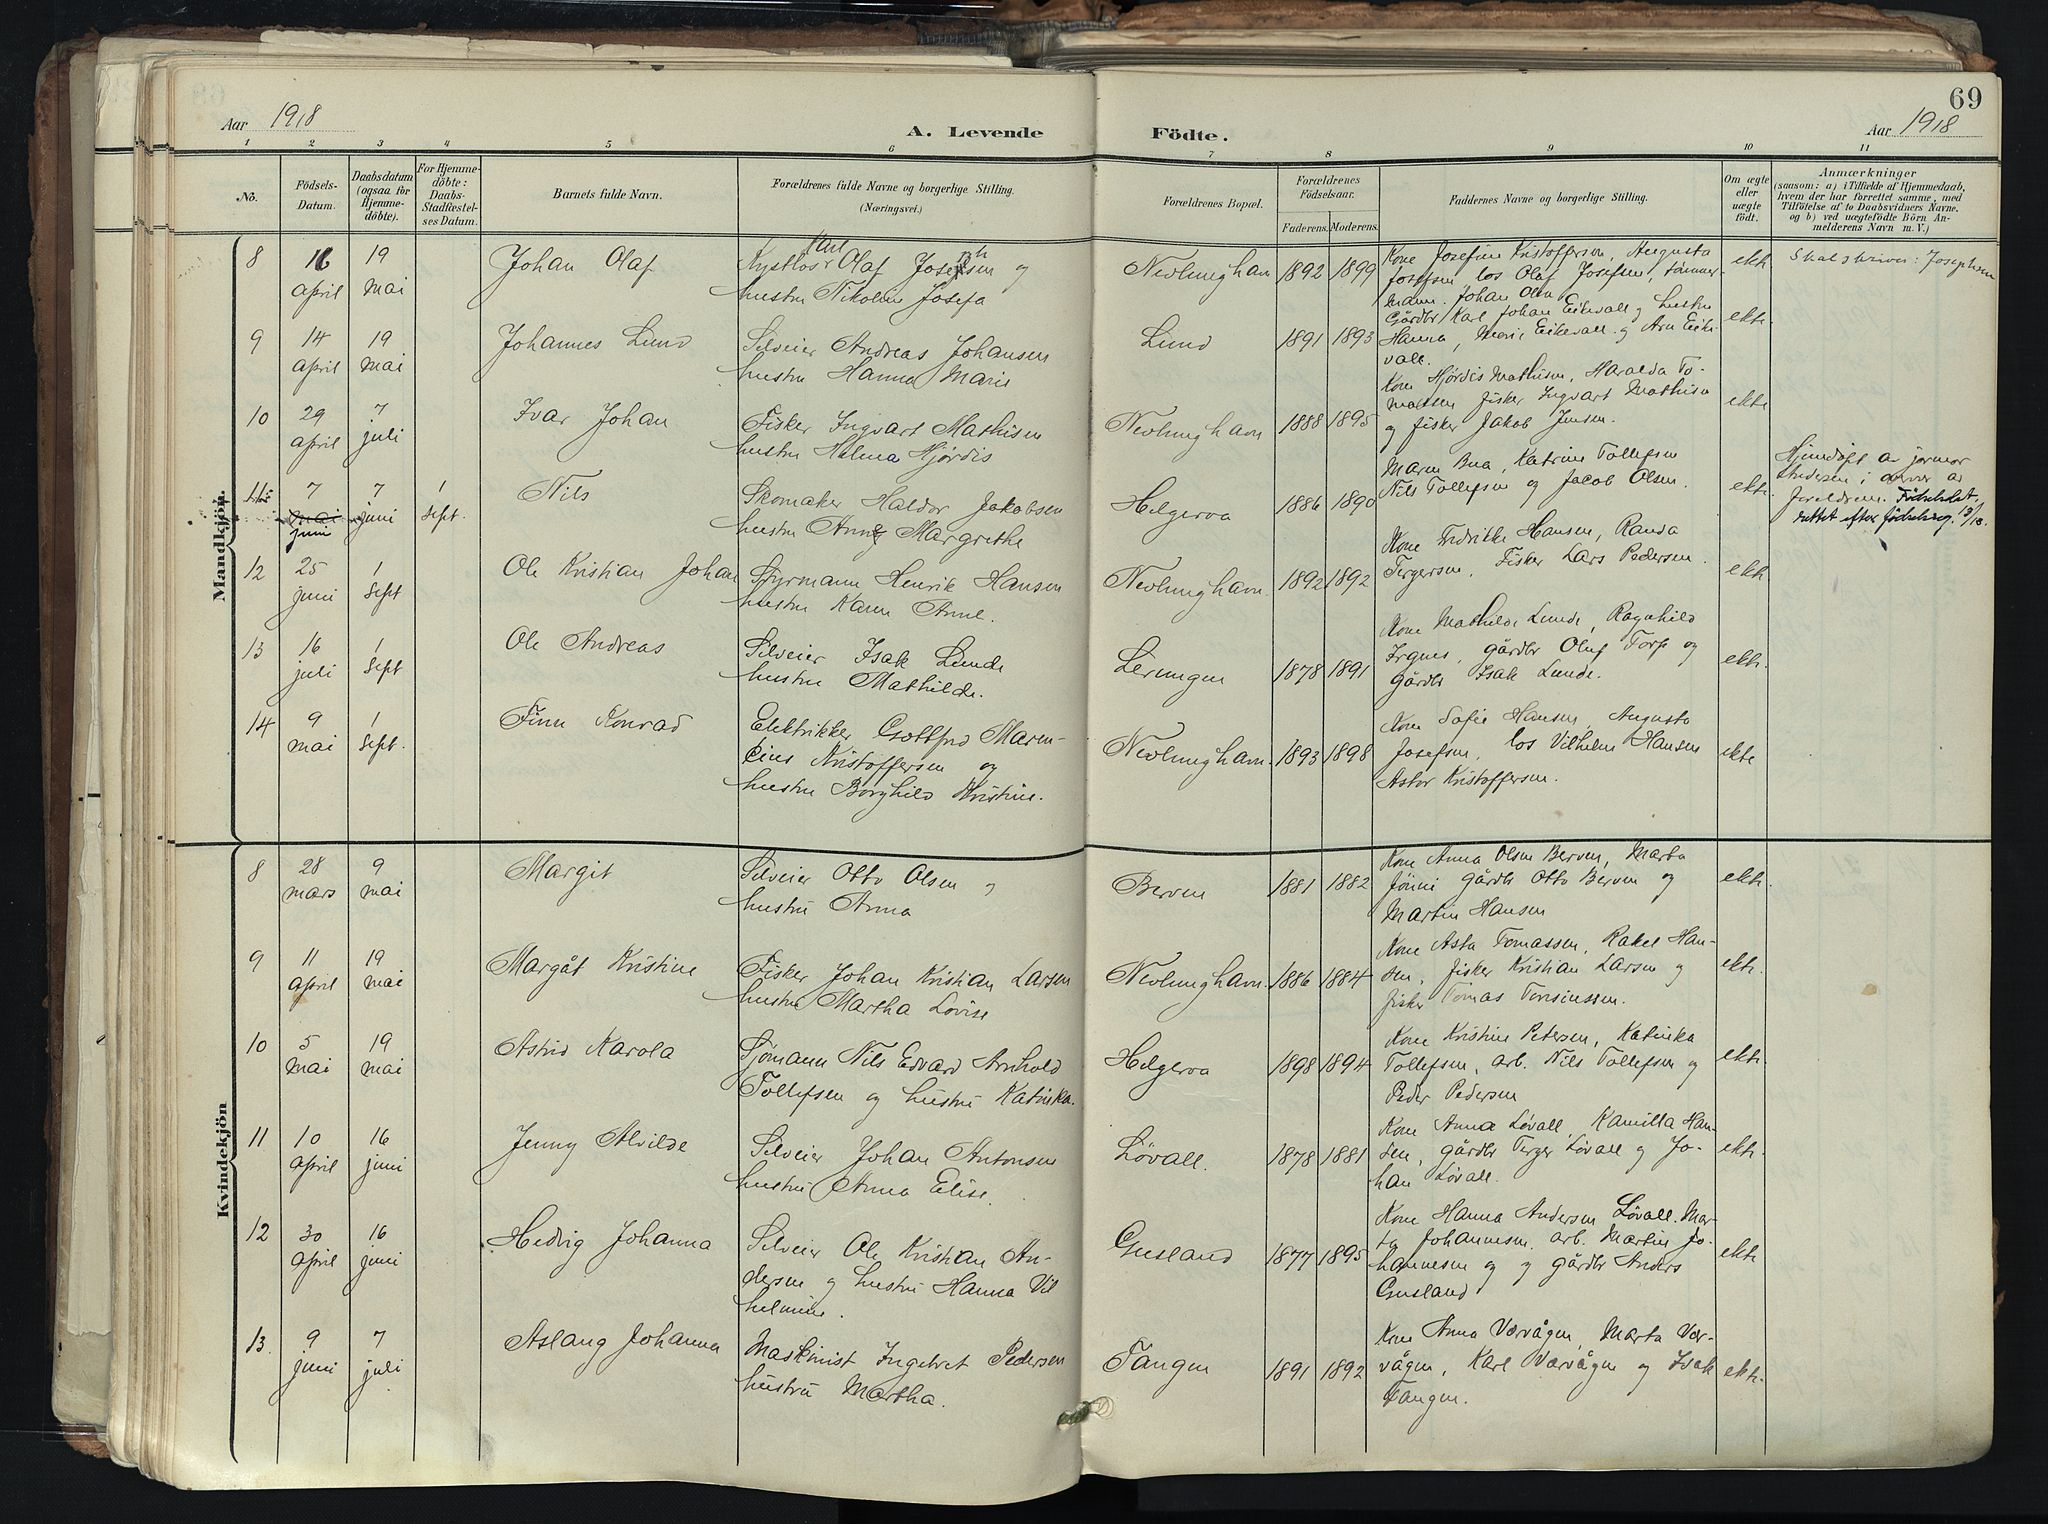 69
Aar 1918
A. Levende Födte.
Aar 1918
1 2 3 4 5 6 7 8 9 10 11
No.
Födsels-
Datum.
Daabsdatum
(ogsaa for
Hjemme-
döbte).
For Hjemme-
döbte:
Daabs-
Stadfæstel-
ses Datum.
Barnets fulde Navn.
Forældrenes fulde Navne og borgerlige Stilling.
(Næringsvei.)
Forældrenes Bopæl.
Forældrenes
Födselsaar.
Faderens. Moderens.
Faddernes Navne og borgerlige Stilling.
Om ægte
eller
uægte
födt.
Anmærkninger
(saasom: a) i Tilfælde af Hjemmedaab,
hvem der har forrettet samme, med
Tilföielse af to Daabsvidners Navne.
og b) ved uægtefödte Börn An-
melderens Navn m. V.)
Mandkjön.
8
16
april
19
mai
Johan Olaf
Karl
Kystlos Olaf Josephsen og
hustru Nikoline Josefa
Nevlunghavn
1892 1899
Kone Josefine Kristoffersen, Augusta
Josefsen, los Olaf Josefsen, tømmer-
mann Johan Olsen
ekte
Skal skrives: Josephsen
9
14
april
19
mai
Johannes Lund
Selveier Andreas Johansen
hustru Hanna Marie
Lund
1891 1893
Gårdbr Karl Johan Eikevall og hustru
Hanna, Marie Eikevall og Arn Eike-
vall.
ekte
10
29
april
7
juli
Ivar Johan
Fisker Ingvart Mathisen
hustru Helma Hjørdis
Nevlunghavn
1888 1895
Kone Hjørdis Mathisen, Haralda To-
massen, fisker Ingvart Mathisen
og fisker Jakob Jensen.
ekte
11
7
mai
juni
7
juni
1
sept.
Nils
Skomaker Haldor Jakobsen
hustru Anne Margrethe
Helgeroa
1886 1890
Maren Bua, Katrine Tollefsen
Nils Tollefsen og Jacob Olsen.
ekte
Hjemdøpt av jormor
Andersen i nærvær av
foreldrene. Fødselsdat.
rettet efter fødselsreg.
12
25
juni
1
sept
Ole Kristian Johan
Styrmann Henrik Hansen
hustru Karen Anne.
Nevlunghavn.
1892 1892
Kone Fredrikke Hansen, Randa
Tergersen, Fisker Lars Pedersen.
ekte
13
16
juli
1
sept
Ole Andreas
Selveier Isak Lunde
hustru Mathilde.
Lerungen
1878 1891
Kone Mathilde Lunde, Ragnhild
Yrgnes, gårdbr Oluf Torp og
gårdbr Isak Lunde.
ekte.
14
9
mai
1
sept.
Finn Konrad
Elektrikker Gottfred Maren-
eius Kristoffersen og
hustru Borghild Kristine.
Nevlunghavn.
1893 1898
Kone Sofie Hansen, Augusta
Josefsen, los Vilhelm Hansen
Astor Kristoffersen.
ekte
Kvindekjön
8
28
mars
9
mai
Margit
Selveier Otto Olsen og
hustru Anna
Berven
1881 1882
Kone Anna Olsen Berven, Marta
Jønni gårdbr Otto Berven og
Martin Hansen
ekte.
9
11
april
19
mai
Margåt Kristine
Fisker Johan Kristian Larsen
hustru Martha Lovise
Nevlunghavn.
1886 1884
Kone Asta Tomassen, Rakel Han-
sen, fisker Kristian Larsen og
fisker Tomas
ekte.
10
5
mai
19
mai
Astrid Karola
Sjømann Nils Edvard Arnhold
Tollefsen og hustru Katinka.
Helgeroa
1898 1894
Kone Kristine Petersen, Katinka
Tollefsen, arb. Nils Tollefsen og
Peder Pedersen
ekte.
11
10
april
16
juni
Jenny Alvilde
Selveier Johan Antonsen
hustru Anna Elise.
Løvall.
1878 1881
Kone Anna Løvall, Kamilla Han-
sen, gårdbr Terger Løvall og Jo-
han Løvall.
ekte.
12
30
april
16
juni
Hedvig Johanna
Selveier Ole Kristian An-
dersen og hustru Hanna Vil
helmine.
Gusland
1877 1895
Kone Hanna Andersen Løvall. Mar-
ta Johannesen, arb. Martin Jo-
hannesen og og gårdbr Anders
Gusland
ekte
13.
9
juni
7
juli
Aslaug Johanna
Maskinist Ingebret Pedersen
hustru Martha.
Tangen
1891 1892
Kone Anna Værvågen, Marta Vær-
vågen, Karl Værvågen og Isak
Tangen.
ekte.